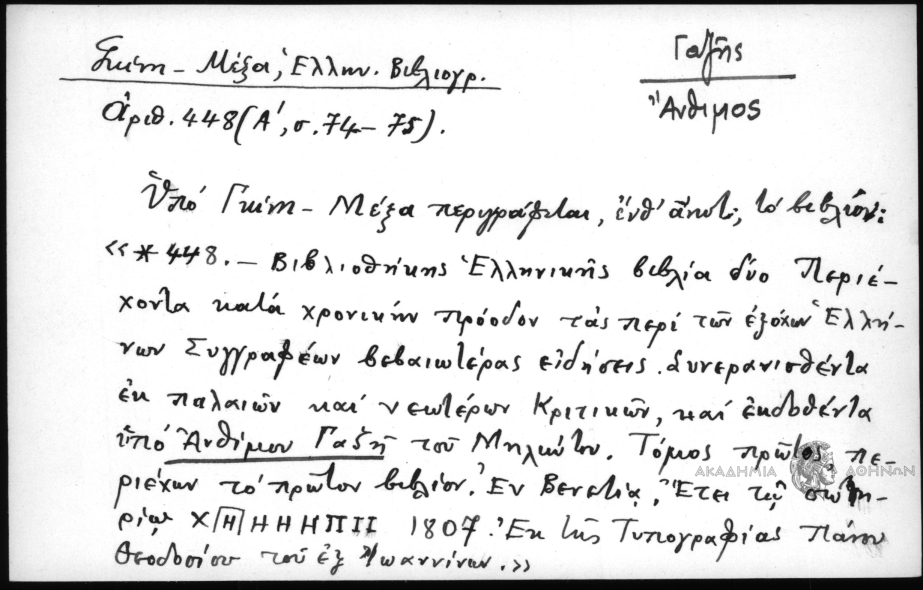 Γκίνη – Μέξα, Ἑλλην. Βιβλιογρ.
ἀριθ. 448 (Α΄, σ. 74 – 75).
Γαζῆς
Ἄνθιμος
Ὑπό Γκίνη – Μέξα περιγράφεται, ἔνθ' ἀνωτ., τό βιβλίον:
«*448. – Βιβλιοθήκης Ἑλληνικῆς βιβλία δύο Περιέ-
χοντα κατά χρονικήν πρόοδον τάς περί τῶν ἐξόχων Ἑλλή-
νων Συγγραφέων βεβαιωτέρας εἰδήσεις. Συνερανισθέντα
ἐκ παλαιῶν καί νεωτέρων Κριτικῶν, καί ἐκδοθέντα
ὑπό Ἀνθίμου Γαζῆ τοῦ Μηλιώτου. Τόμος πρῶτος, πε-
ριέχων τό πρῶτον βιβλίον. Ἐν Βενετίᾳ, Ἔτει τῆς σωτη-
ρίας Χ|Η|ΗΗΗΠΙΙ 1807. Ἐκ τῆς Τυπογραφίας Πάνου
Θεοδοσίου τοῦ ἐξ Ἰωαννίνων.»
ΑΚΑΔΗΜΙΑ ΑΘΗΝΩΝ